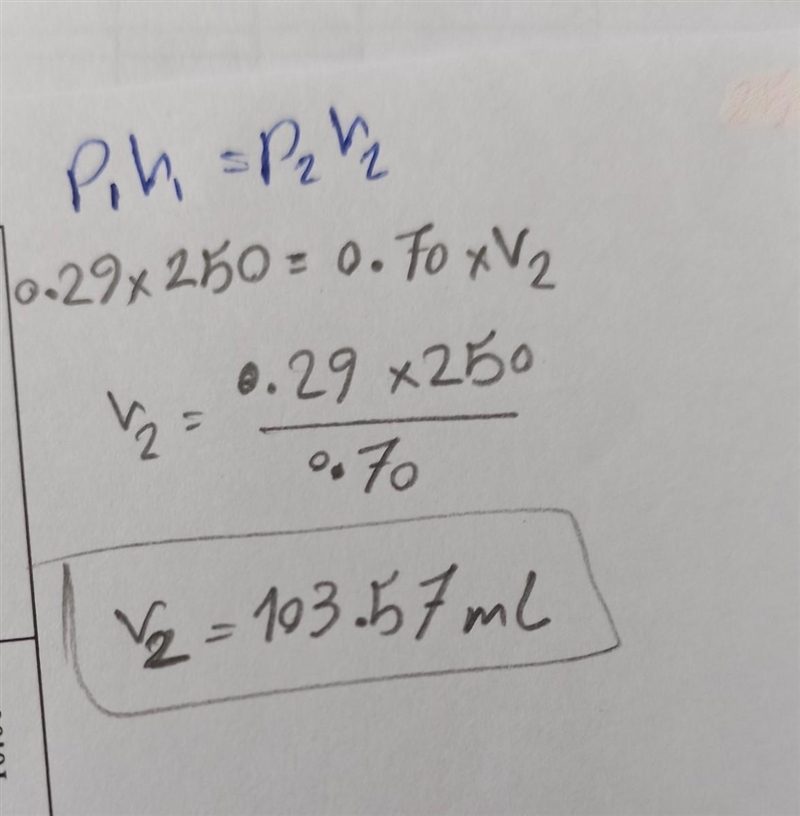 P₁V₁ = P₂V₂
0.29 × 250 = 0.70 × V₂
V₂ = 0.29 × 250 / 0.70
V₂ = 103.57 ml